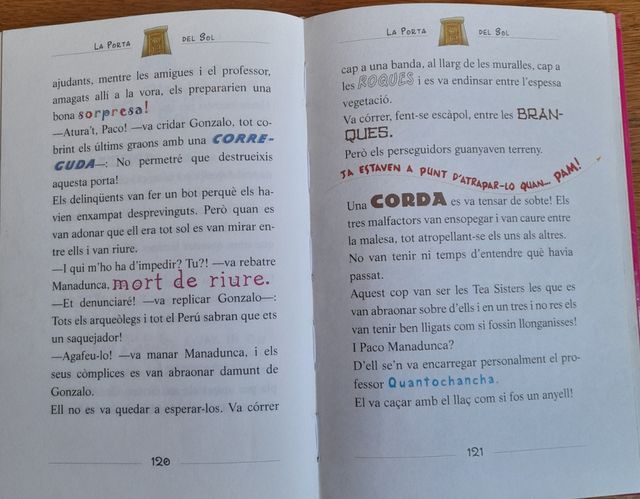 LA PORTA DEL SOL
ajudants, mentre les amigues i el professor,
amagats allí a la vora, els prepararien una
bona sorpresa!
—Atura't, Paco! —va cridar Gonzalo, tot co-
brint els últims graons amb una CORRE-
CUDA—: No permetré que destrueixis
aquesta porta!
Els delinqüents van fer un bot perquè els ha-
vien enxampat desprevinguts. Però quan es
van adonar que ell era tot sol es van mirar en-
tre ells i van riure.
—I qui m'ho ha d'impedir? Tu?! —va rebatre
Manadunca, mort de riure.
—Et denunciaré! —va replicar Gonzalo—:
Tots els arqueòlegs i tot el Perú sabran que ets
un saquejador!
—Agafeu-lo! —va manar Manadunca, i els
seus còmplices es van abraonar damunt de
Gonzalo.
Ell no es va quedar a esperar-los. Va córrer
120
LA PORTA DEL SOL
cap a una banda, al llarg de les muralles, cap a
les ROQUES i es va endinsar entre l'espessa
vegetació.
Va córrer, fent-se escàpol, entre les BRAN-
QUES.
Però els perseguidors guanyaven terreny.
JA ESTAVEN A PUNT D'ATRAPAR-LO QUAN... PAM!
Una CORDA es va tensar de sobte! Els
tres malfactors van ensopegar i van caure entre
la malesa, tot atropellant-se els uns als altres.
No van tenir ni temps d'entendre què havia
passat.
Aquest cop van ser les Tea Sisters les que es
van abraonar sobre d'ells i en un tres i no res els
van tenir ben lligats com si fossin llonganisses!
I Paco Manadunca?
D'ell se'n va encarregar personalment el pro-
fessor Quantochancha.
El va caçar amb el llaç com si fos un anyell!
121